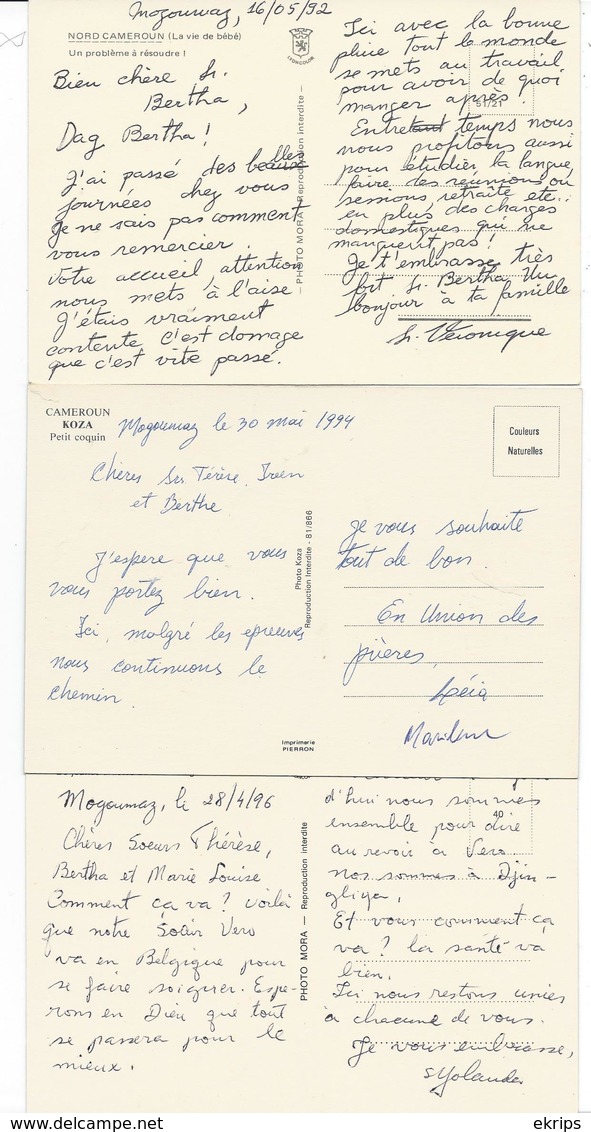 Mogoumaz, 16/05/92
NORD CAMEROUN (La vie de bébé)
Un problème à résoudre !
LYONCOLOR
Bien chère Sr.
Bertha,
Dag Bertha!
J'ai passé des belles
journées chez vous
je ne sais pas comment
vous remercier.
Votre accueil, attention
nous mets à l'aise
J'étais vraiment
contente c'est domage
que c'est vite passé.
— PHOTO MORA — Reproduction interdite —
51/21
Ici avec la bonne
pluie tout le monde
se mets au travail
pour avoir de quoi
manger après.
Entretant temps nous
nous profitons aussi
pour étudier la langue,
faire des réunions ou
sessions, retraite etc..
en plus des charges
domestiques qui ne
manquent pas!
Je t'embrasse très
fort Sr. Bertha. Un
bonjour à ta famille
Sr. Véronique
CAMEROUN
KOZA
Petit coquin
Mogoumaz le 30 mai 1994
Couleurs
Naturelles
Chères Srs Térèse, Ireen
et Berthe
J'espere que vous
vous portez bien.
Ici, malgré les epreuves
nous continuons le
chemin.
Photo Koza
Reproduction Interdite - 81/866
Imprimerie
PIERRON
Je vous souhaite
tout de bon.
En Union des
prières,
Mogoumaz, le 28/4/96
Chères Soeurs Thérèse,
Bertha et Marie Louise
Comment ça va? Voilà
que notre Soeur Vero
va en Belgique pour
se faire soigner. Espe-
rons en Dieu que tout
se passera pour le
mieux.
PHOTO MORA — Reproduction interdite
40
d'hui nous sommes
ensemble pour dire
au revoir à Vero
nos sommes à Djin-
gliya,
Et vous comment ça
va? la santé va
bien.
Ici nous restons unies
à chacune de vous.
Je vous embrasse,
S Yolanda
ekrips
delcampe.net